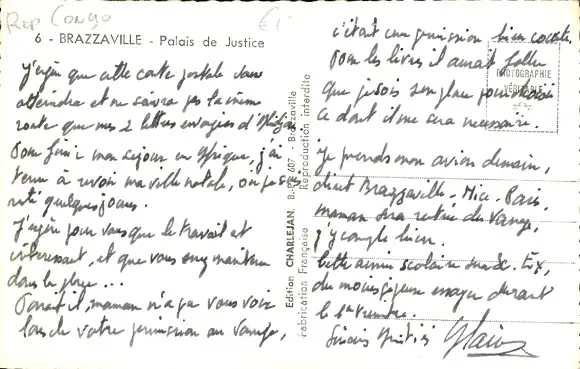 Rep Congo
6 - BRAZZAVILLE - Palais de Justice
J'espère que cette carte postale vous
atteindra et ne suivra pas la même
route que mes 2 lettres envoyées d'
Pour finir mon séjour en Afrique, j'ai
tenu à revoir ma ville natale, où je suis
resté quelques jours.
J'espère pour vous que le travail est
intéressant, et que vous vous maintenez
dans la place...
Paraît il, maman n'a pu vous voir
lors de votre permission au
c'était une permission bien courte.
Pour les livres il aurait fallu
que je sois sur place pour choisir
ce dont il me sera nécessaire.
Je prends mon avion demain,
direct Brazzaville - Nice - Paris.
maman sera rentrée du
j'y compte bien.
Cette année scolaire sera
du moins j'essaye durant
le 1er trimestre.
Sincères Amitiés
PHOTOGRAPHIE
VÉRITABLE
Edition CHARLEJAN, B.P. 607 - Brazzaville
Fabrication Française Reproduction interdite